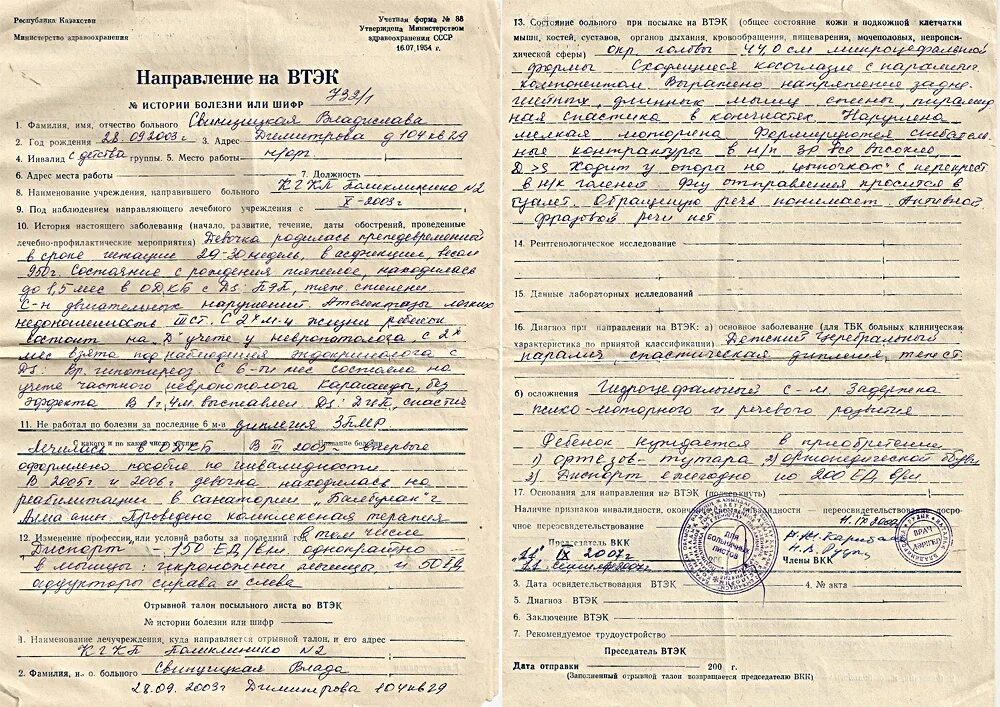 Республика Казахстан
Министерство здравоохранения
Учетная форма № 88
Утверждена Министерством
здравоохранения СССР
16.07.1954 г.
Направление на ВТЭК
№ ИСТОРИИ БОЛЕЗНИ ИЛИ ШИФР 732/1
1. Фамилия, имя, отчество больного Свинцицкая Владислава
2. Год рождения 28.09.2003г 3. Адрес Димитрова д 104 кв 29
4. Инвалид с детства группы. 5. Место работы н/орг.
6. Адрес места работы 7. Должность
8. Наименование учреждения, направившего больного КГКП Поликлиника №2
9. Под наблюдением направляющего лечебного учреждения с X-2003г
10. История настоящего заболевания (начало, развитие, течение, даты обострений, проведенные
лечебно-профилактические мероприятия) Девочка родилась преждевременно
в сроке гестации 29-30 недель, в асфиксии, весом
950г. Состояние с рождения тяжелое, находилась
до 1,5 мес в ОДКБ с Ds: ПЭП, тяж. степени.
С-м двигательных нарушений. Ателектазы легких
недоношенность III ст. С 2х м-ц жизни ребенок
состоит на "Д" учете у невропатолога, с 2х
мес взята под наблюдение эндокринолога с
Ds: Вр. гипотиреоз. С 6-ти мес состояла на
учете частного невропатолога Караганда, без
эффекта. В 1г,4м. выставлен Ds: ДЦП, спастич
11. Не работал по болезни за последние 6 м-в диплегия ЗПМР.
С какого и по какое число месяца Название болезни
Лечилась в ОДКБ В III 2005г впервые
оформлено пособие по инвалидности
В 2005г и 2006г девочка находилась на
реабилитации в санатории "Балбулак" г
Алматы. Проведена комплексная терапия
12. Изменение профессии или условий работы за последний год в том числе
Диспорт - 150 ЕД/вм. однократно
в мышцы: икроножные мышцы и 50 ЕД
аддукторы справа и слева
Отрывной талон посыльного листа во ВТЭК
№ истории болезни или шифр
1. Наименование лечучреждения, куда направляется отрывной талон, и его адрес
КГКП Поликлиника №2
2. Фамилия, и., о. больного Свинцицкая Влада
28.09.2003г Димитрова 104 кв 29
13. Состояние больного при посылке на ВТЭК (общее состояние кожи и подкожной клетчатки
мышц, костей, суставов, органов дыхания, кровообращения, пищеварения, мочеполовых, невропси-
хической сферы) окр. головы 44,0 см микроцефальной
формы Сходящееся косоглазие с паралит.
компонентом Выражено напряжение задне-
шейных, длинных мышц спины, пирамид
ная спастика в конечностях. Нарушена
мелкая моторика Формируются сгибатель-
ные контрактуры в н/к
D>S Ходит у опоры на "цыпочках" с перекрест
в н/к голеней. Физ отправления просится в
туалет. Обращенную речь понимает. Активной
фразовой речи нет
14. Рентгенологическое исследование
15. Данные лабораторных исследований
16. Диагноз при направлении на ВТЭК: а) основное заболевание (для ТБК больных клиническая
характеристика по принятой классификации) Детский церебральный
паралич, спастическая диплегия, тяж ст
б) осложнения Гидроцефальный с-м. Задержка
психо-моторного и речевого развития
Ребенок нуждается в приобретении
1) ортезов-тутора 2) ортопедической обуви
3) Диспорт ежегодно по 200 ЕД в/м
17. Основания для направления на ВТЭК (подчеркнуть)
Наличие признаков инвалидности, окончание срока инвалидности переосвидетельствование, досроч-
ное переосвидетельствование 11.IX.2007
Председатель ВКК
IX 2007г
Члены ВКК
ДЛЯ БОЛЬНИЧНЫХ ЛИСТОВ
ВРАЧ
3. Дата освидетельствования ВТЭК 4. № акта
5. Диагноз ВТЭК
6. Заключение ВТЭК
7. Рекомендуемое трудоустройство
Председатель ВТЭК
Дата отправки 200 г.
(Заполненный отрывной талон возвращается председателю ВКК)